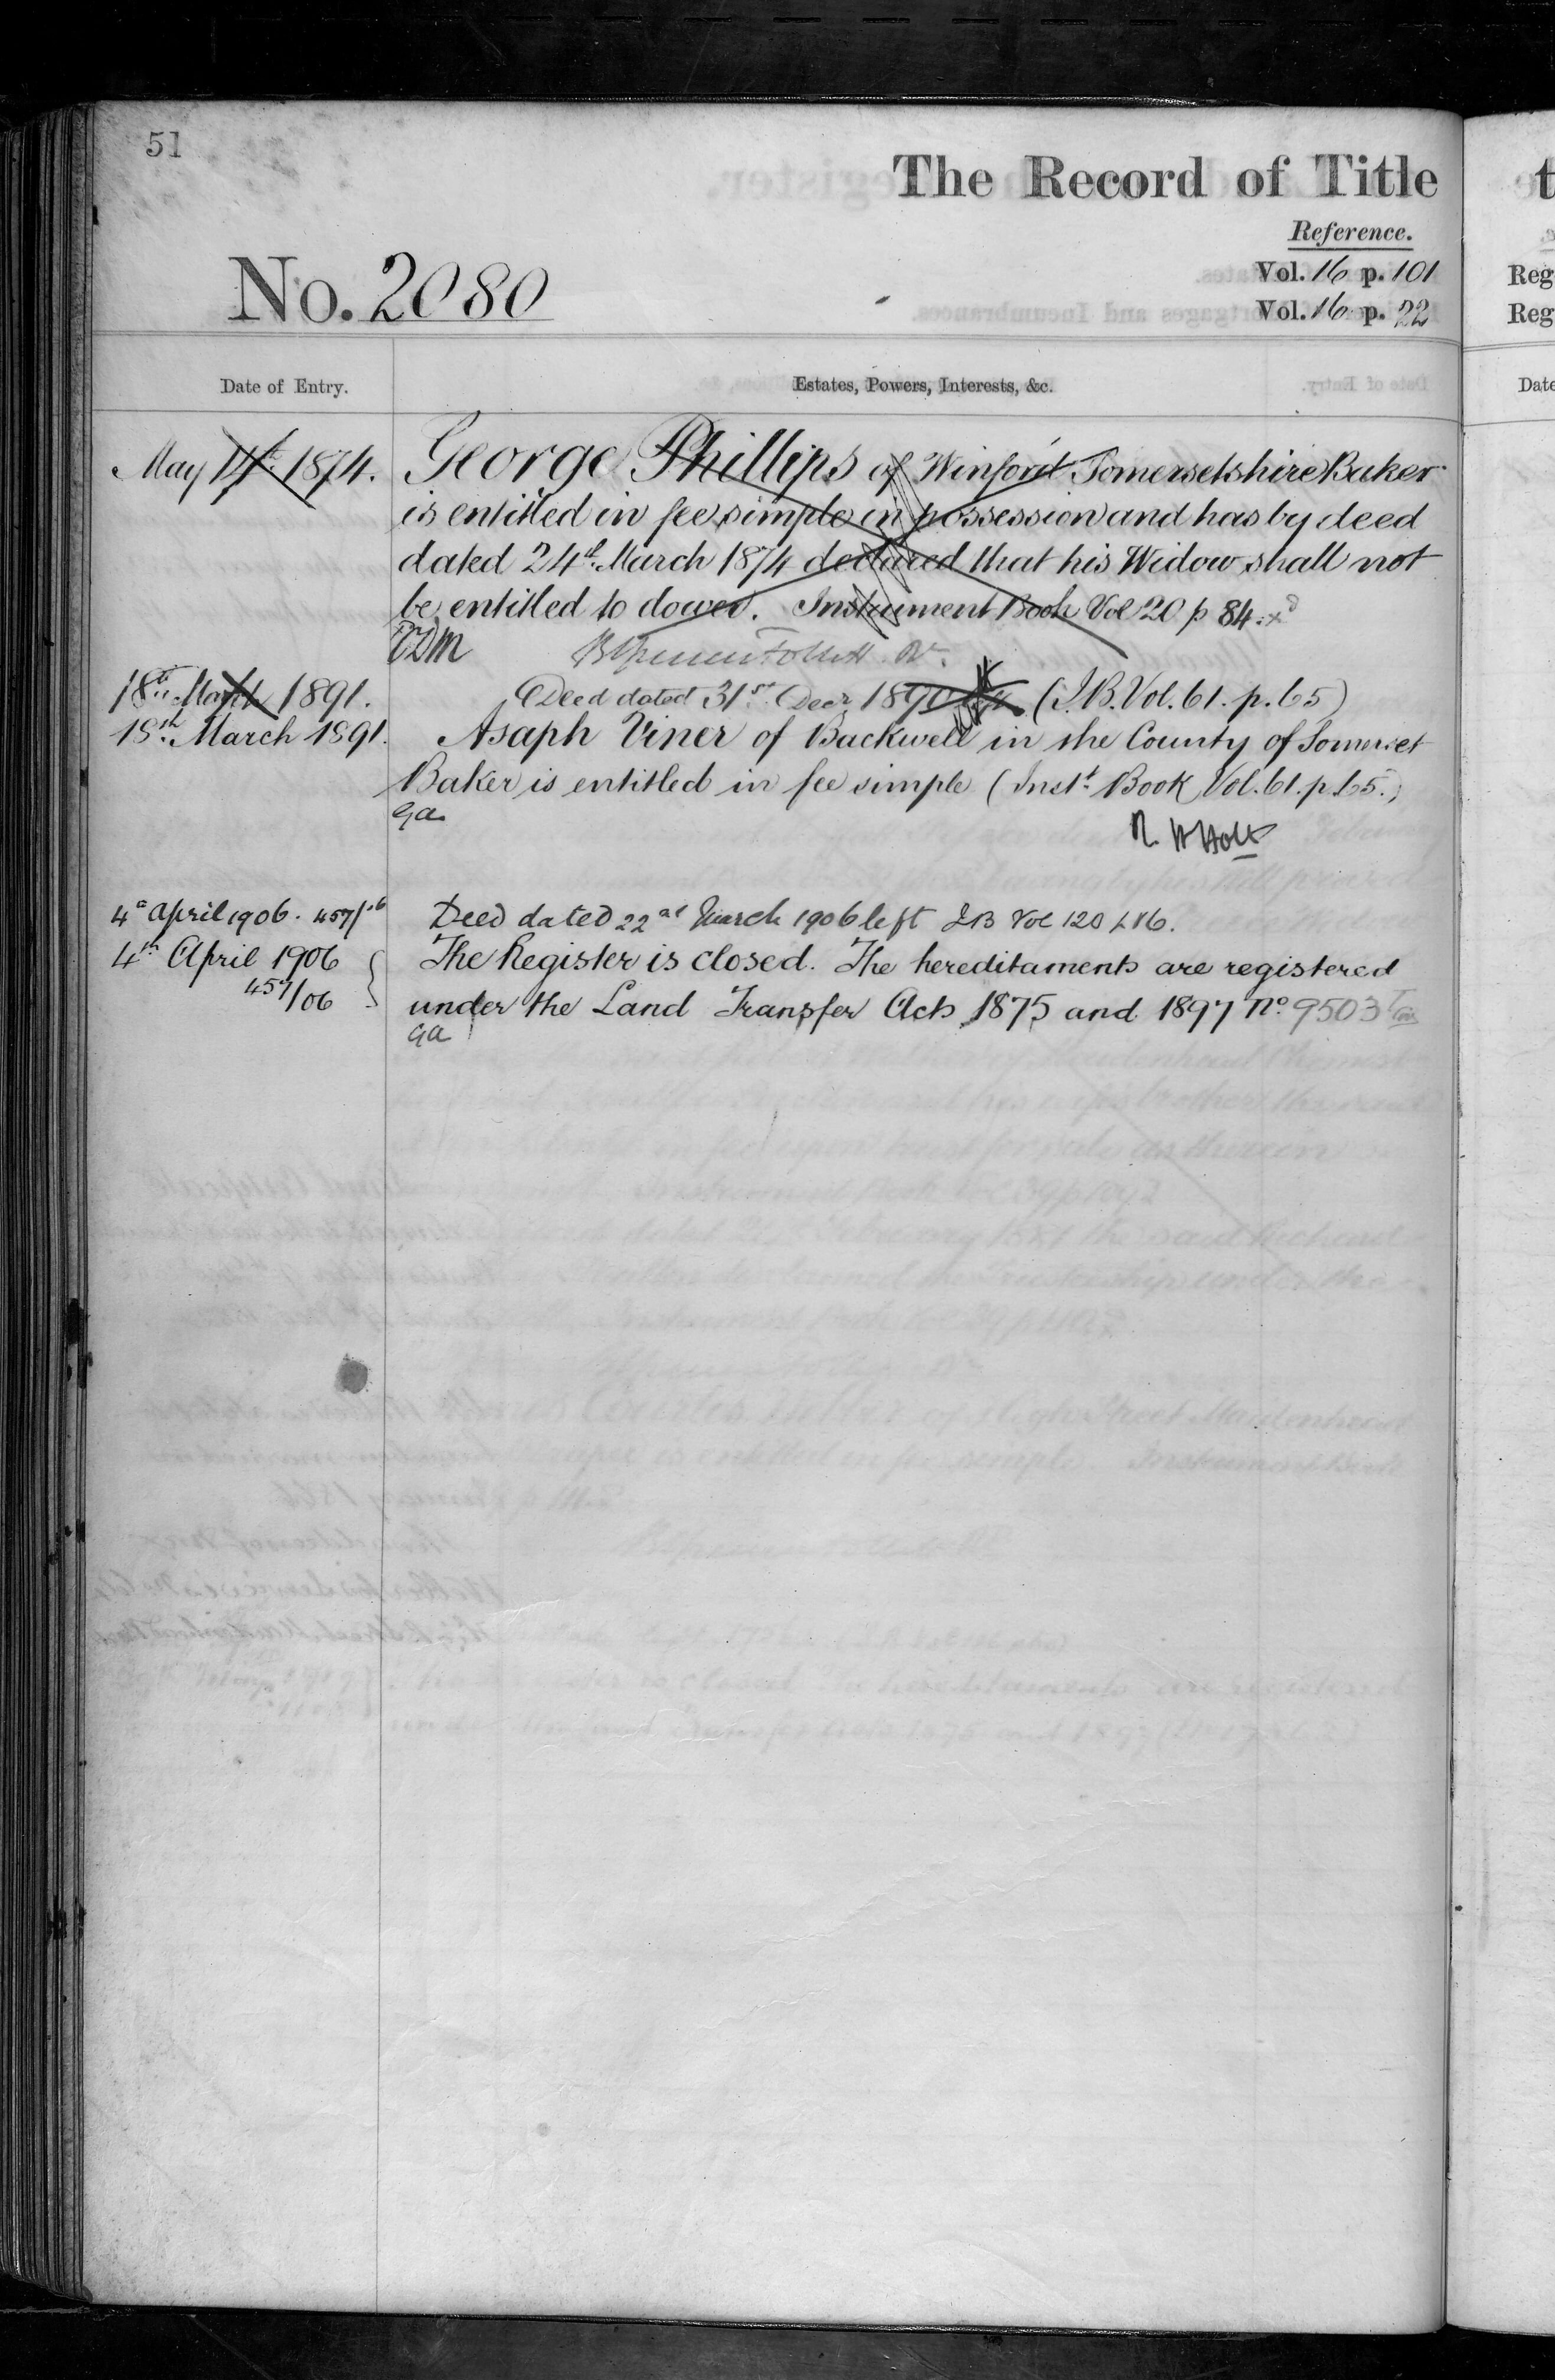 51
The Record of Title
Reference.
Vol. 16 p. 101
No. 2080
Vol. 16 p. 22
Date of Entry.
Estates, Powers, Interests, &c.
May 14th 1874. George Phillips of Winford Somersetshire Baker
is entitled in fee simple in possession and has by deed
dated 24th March 1874 declared that his Widow shall not
be entitled to dower. Instrument Book Vol 20 p 84
18th March 1891. Deed dated 31st Decr. 1890 (I.B. Vol. 61. p. 65)
18th March 1891. Asaph Viner of Backwell in the County of Somerset
Baker is entitled in fee simple (Inst. Book Vol. 61. p. 65.)
GA
R. H Holt
4th April 1906. 457/06 Deed dated 22nd March 1906 left IB Vol 120
4th April 1906 The Register is closed. The hereditaments are registered
457/06 under the Land Transfer Acts 1875 and 1897 No. 9503
GA
t
Reg
Reg
Date